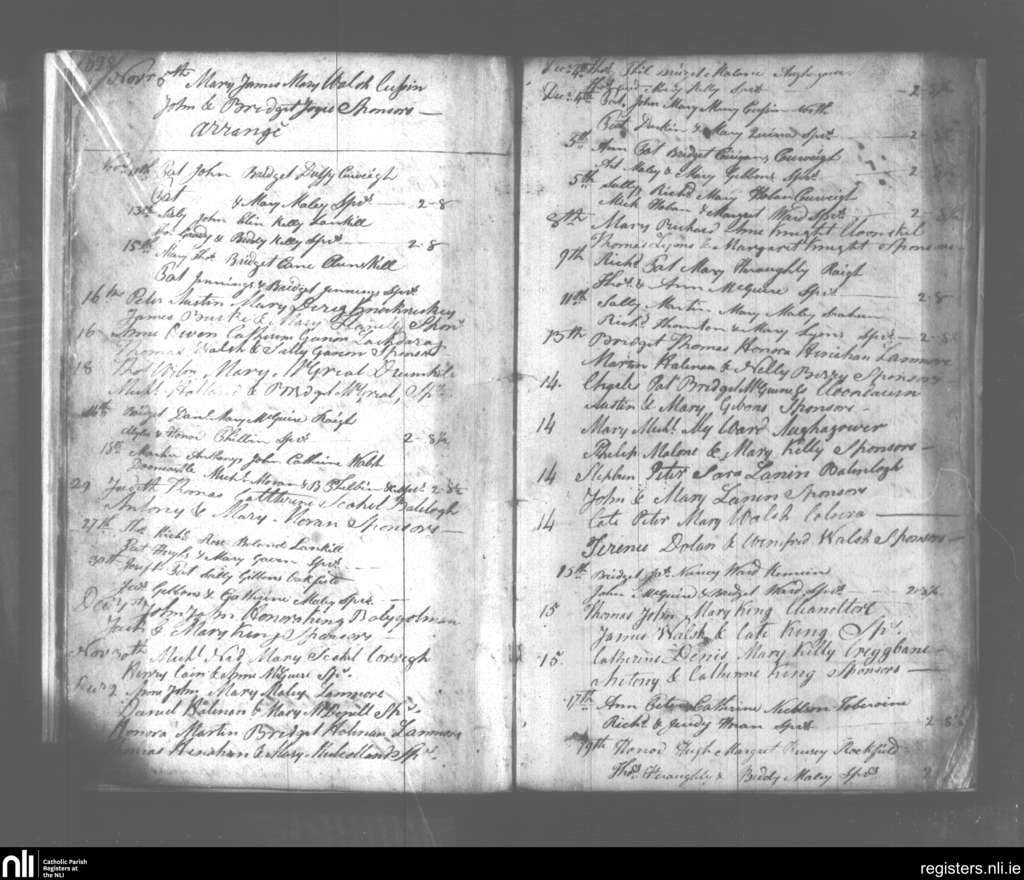 1838
Novr 5th Mary James Mary Walsh Cussin
John & Bridget Joyce Sponsors
arrange
Novr 11th Pat John Bridget Duffy Curveigh
Pat & Mary Maley Sprs 2-8
13th John Kelly Lankill
Grady & Biddy Kelly Sprs 2-8
15th Mary Thos Bridget Cane Claunskill
Pat Jennings & Bridget Jennings Sprs
16th Peter Austin Mary Derig Knockruskey
James Burke & Mary Flanelly Spnr
16 Anne Owen Catherine Ganon Lackdaraj
Thomas Walsh & Sally Ganon Sponsors
18 Thos Willm Mary McGreal Drumkil
Michl Holland & Bridget McGreal, Sps
Bridget Danl Mary McGuire Raigh
Myles & Honor Philbin Sprs 2-8½
18th Martin Anthony John Cathrine Walsh
Michl Moran & B Philbin Sprs 2-8½
29 Judith Thomas Catherine Scahil Balelogh
Antoney & Mary Moran Sponsors
27th Richd Rose Boland Lankill
Pat Heyls & Mary Gavan Sprs
30th Joseph Pat Sally Gibbons Oakfield
Gibbons & Cathrine Maley Sprs
Decr John John Honor King Balygolman
Jack & Mary King Sponsors
Novr 30th Michl Nad Mary Scahil Corveigh
Henry Cain & Anne McGuire Sps
Decr 2 Anne John Mary Maley Lanmore
Daniel Halinan & Mary Sps
Honora Martin Bridget Holinan Lanmore
Thomas Hinahan & Mary Mulholland Sps
Decr Phil Malone Aughagower
Mary Kelly Sprs 2-8½
Decr 4th Pat John Mary Mary Cussin North
Pat Durkin & Mary Quinn Sprs 2
5th Ann Pat Bridget Curveigh
Pat Maley & Mary Gibbons Sprs 2
5th Sally Richd Mary Hoban Curveigh
Mich Hoban & Margret Ward Sprs 2-8½
8th Mary Richard Anne Knight Cloonskil
Thomas Lyons & Margaret Knight Sponsors
9th Richd Pat Mary Heraughty Raigh
Thos & Ann McGuire Sprs 2-8
11th Sally Martin Mary Maley
Richd Thornton & Mary Lyons Sprs 2-8½
13th Bridget Thomas Honora Hinahan Lanmore
Martin Halinan & Nelly Berry Sponsors
14. Pat Bridget McGuiness Cloonlaum
Austin & Mary Gibons Sponsors
14 Mary Michl My Ward Aughagower
Philip Malone & Mary Kelly Sponsors
14 Stephen Peter Sara Lanin Balinlogh
John & Mary Lanin Sponsors
14 Cate Peter Mary Walsh Coloera
Terence Dolan & Wenifred Walsh Sponsors
15th Bridget Jas Nancy Ward
John McGuire & Bridget Ward Sprs 2-8½
15 Thomas John Mary King Clanollore
James Walsh & Cate King Sps
15. Catherine Denis Mary Kelly Creggbane
Antony & Catherine King Sponsors
17th Ann Peter Catherine Nibblon Toberoine
Richd & Judy Moran Sprs 2-8½
19th Honor Hugh Margret Rockfield
Thos Heraughty & Biddy Maley Sprs 2
nli
Catholic Parish
Registers at
the NLI
registers.nli.ie